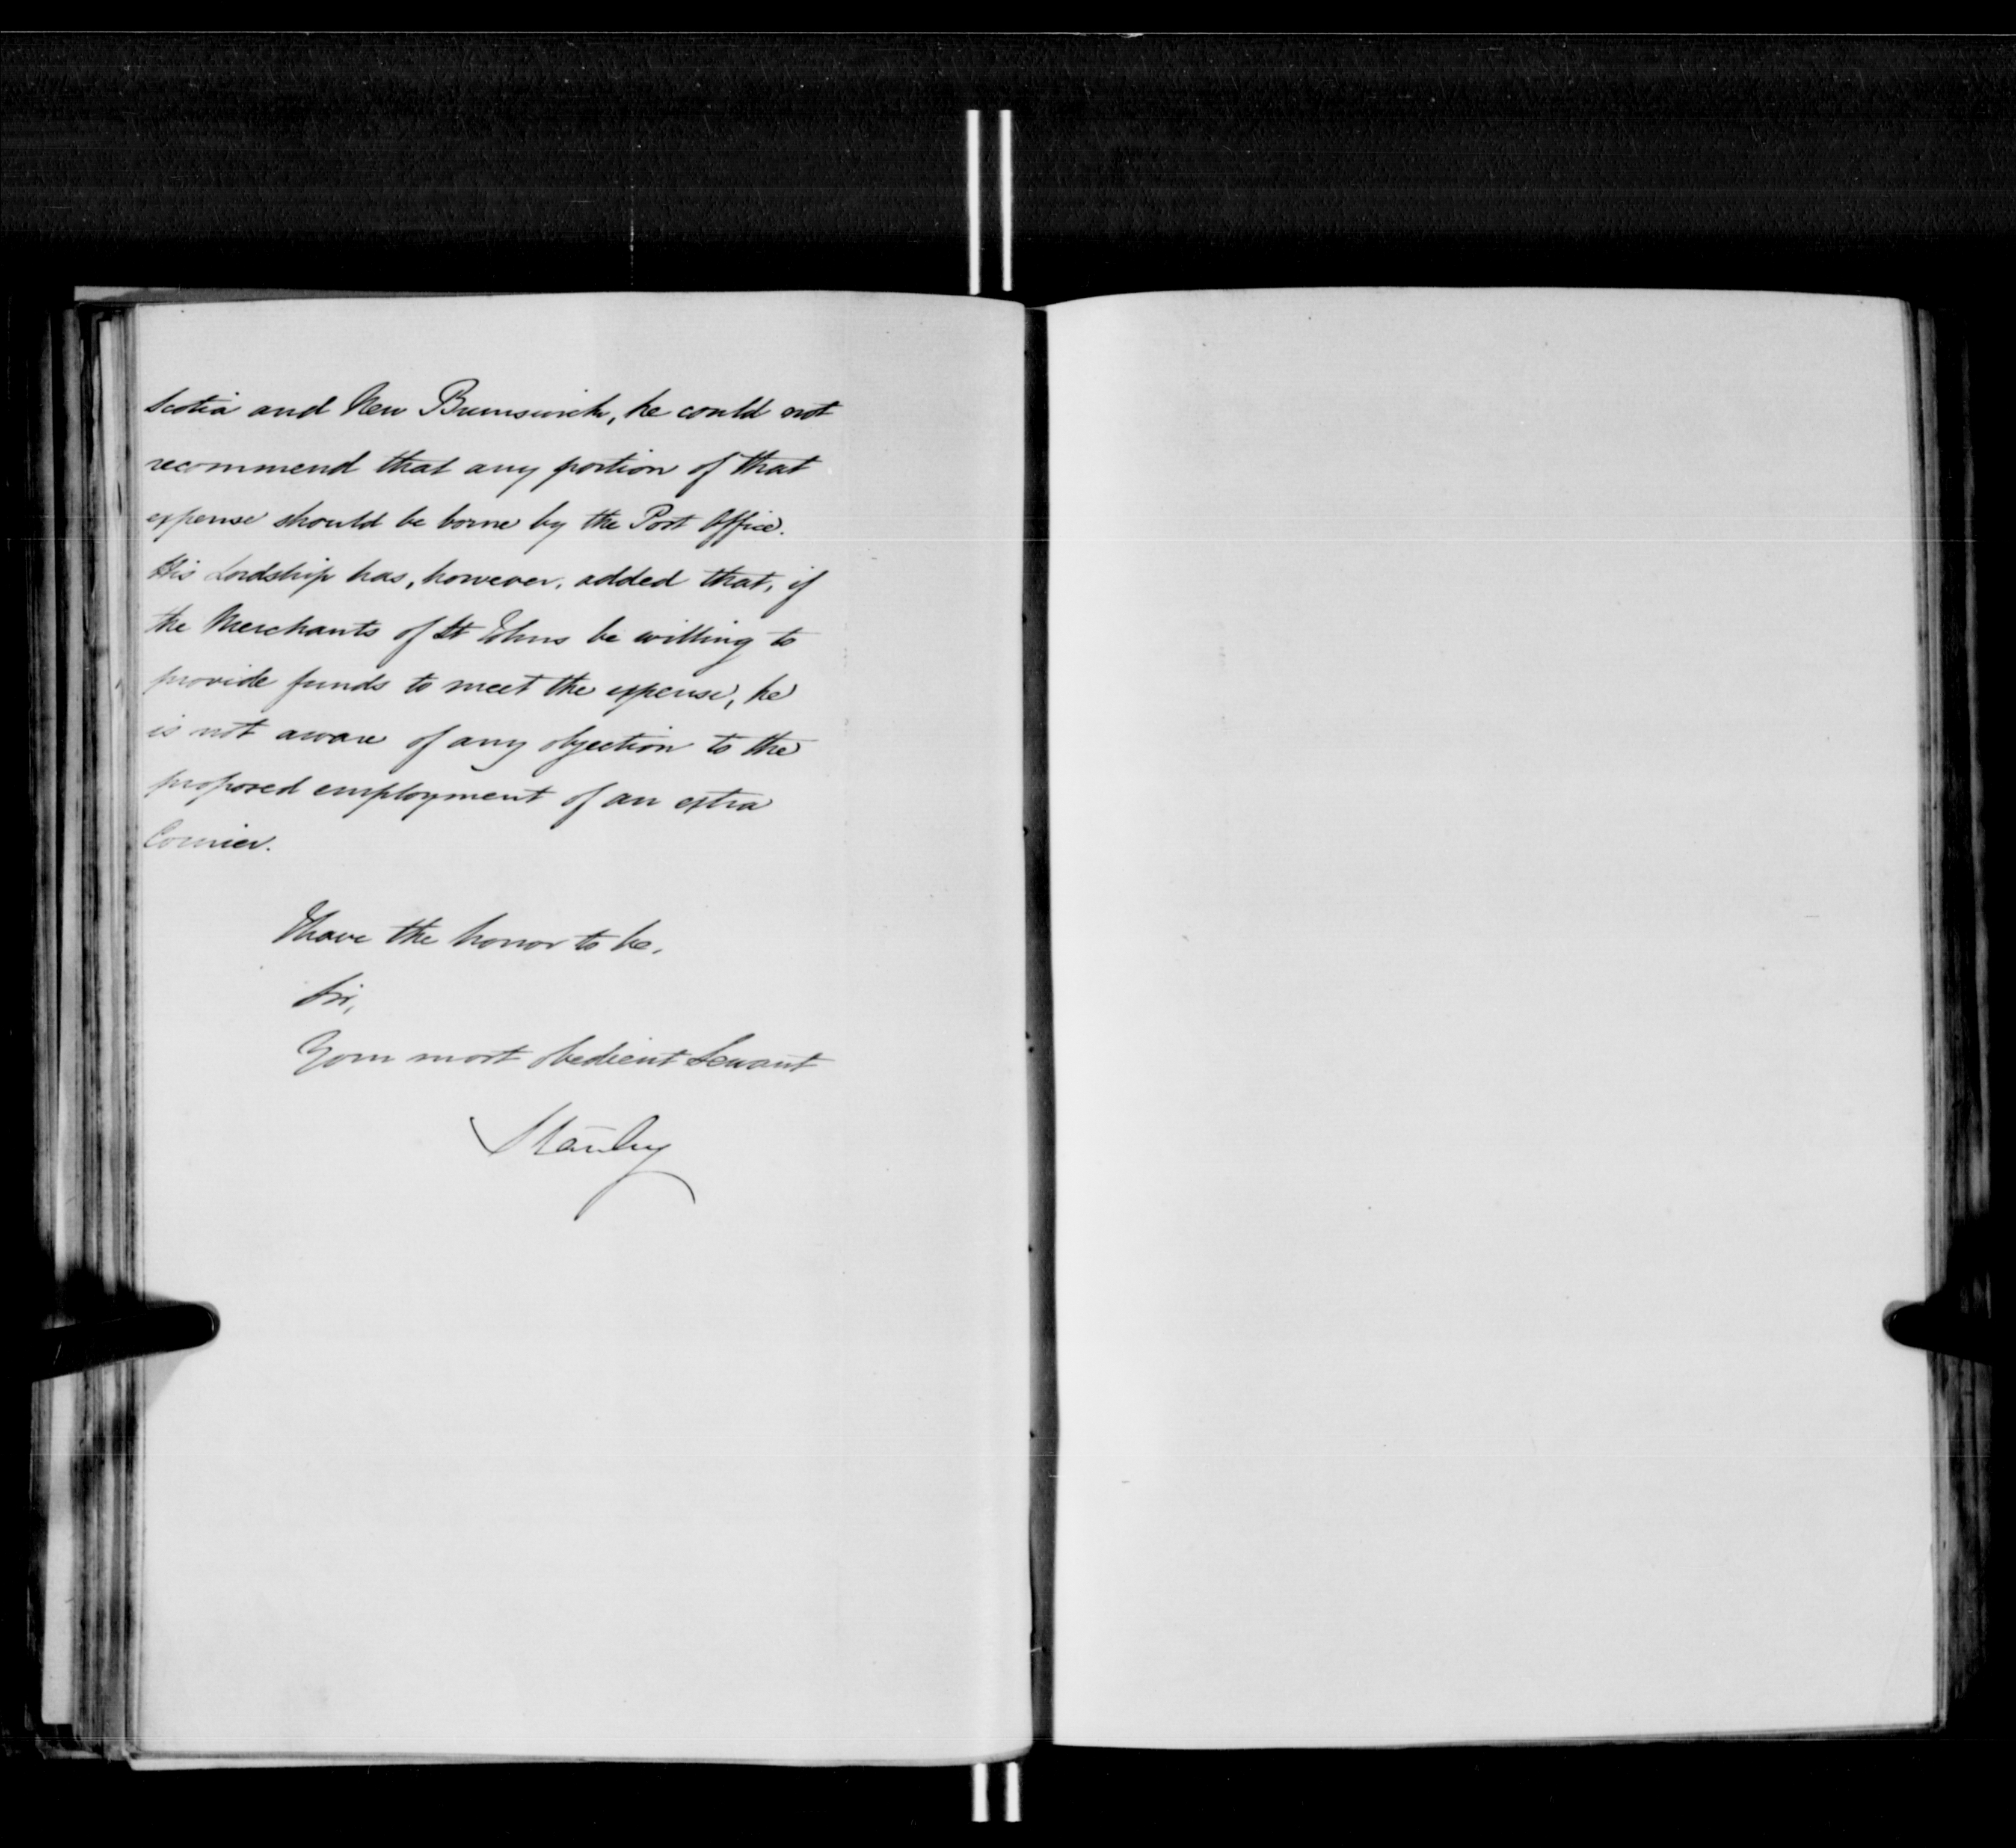 Scotia and New Brunswick, he could not
recommend that any portion of that
expense should be borne by the Post Office.
His Lordship has, however, added that, if
the Merchants of St Johns be willing to
provide funds to meet the expense, he
is not aware of any objection to the
proposed employment of an extra
Courier.
I have the honor to be,
Sir,
Your most obedient Servant
Stanley